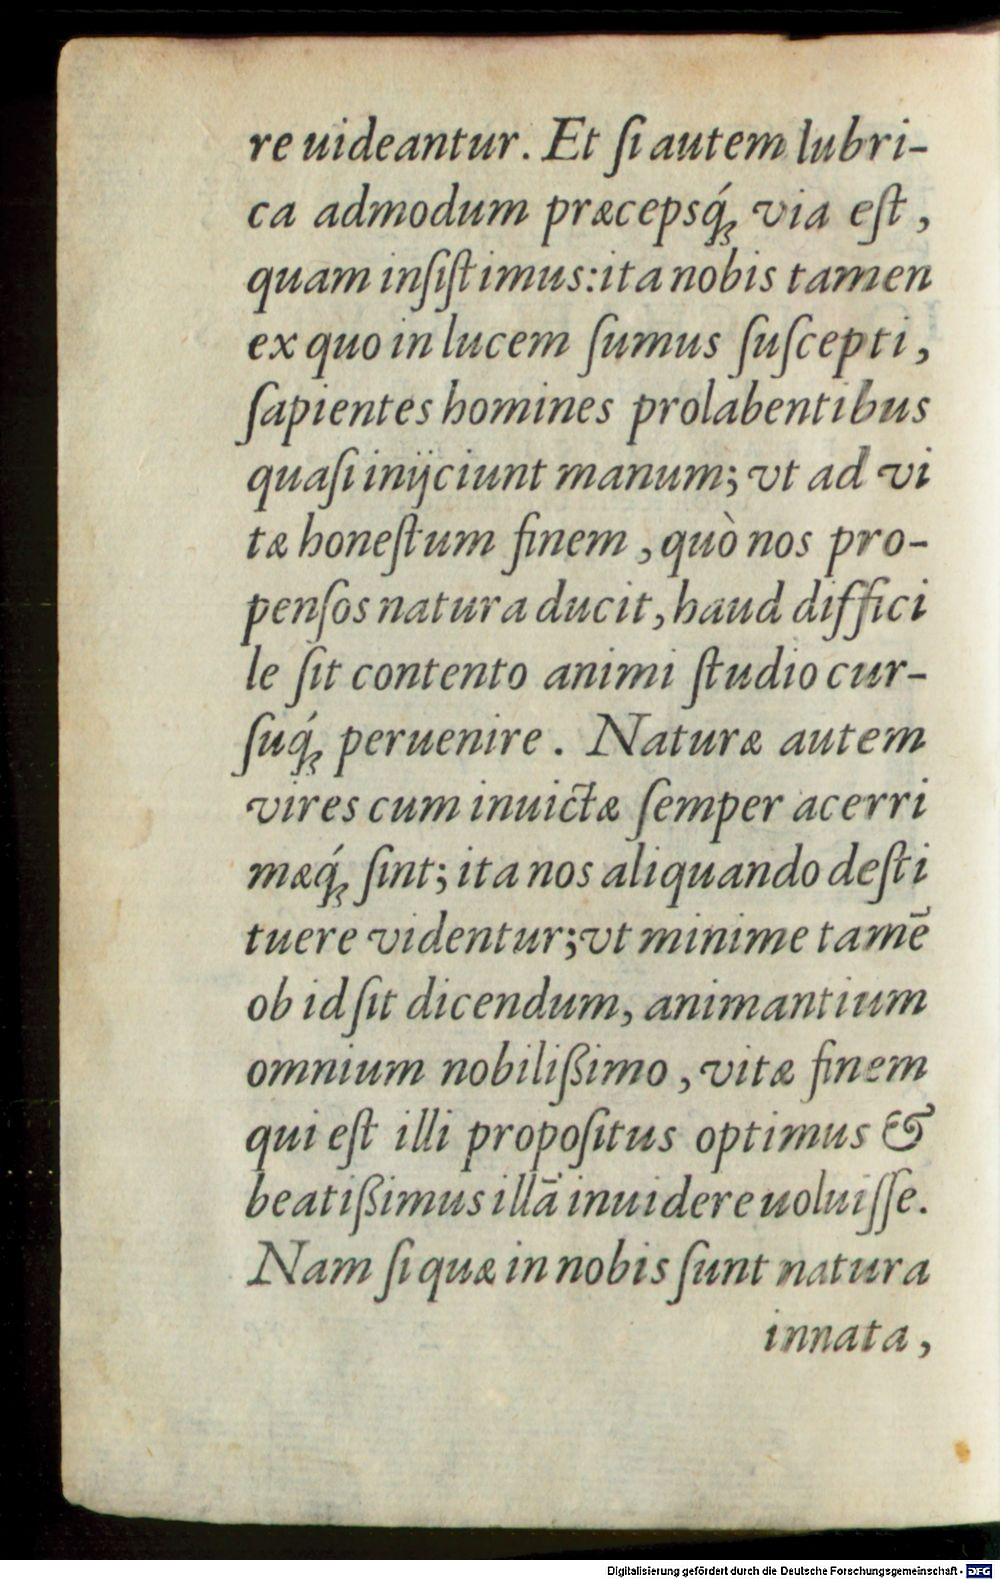 re uideantur. Et ſi autem lubri-
ca admodum præcepsq́ꝫ via eſt,
quam inſiſtimus: ita nobis tamen
ex quo in lucem ſumus ſuſcepti,
ſapientes homines prolabentibus
quaſi inijciunt manum; vt ad vi
tæ honeſtum finem, quò nos pro-
penſos natura ducit, haud diffici
le ſit contento animi ſtudio cur-
ſuq́ꝫ peruenire. Naturæ autem
vires cum inuictæ ſemper acerri
mæq́ꝫ ſint; ita nos aliquando deſti
tuere videntur; vt minime tamē
ob id ſit dicendum, animantium
omnium nobilißimo, vitæ finem
qui eſt illi propoſitus optimus &
beatißimus illā inuidere uoluiſſe.
Nam ſi quæ in nobis ſunt natura
innata,
Digitalisierung gefördert durch die Deutsche Forschungsgemeinschaft - DFG